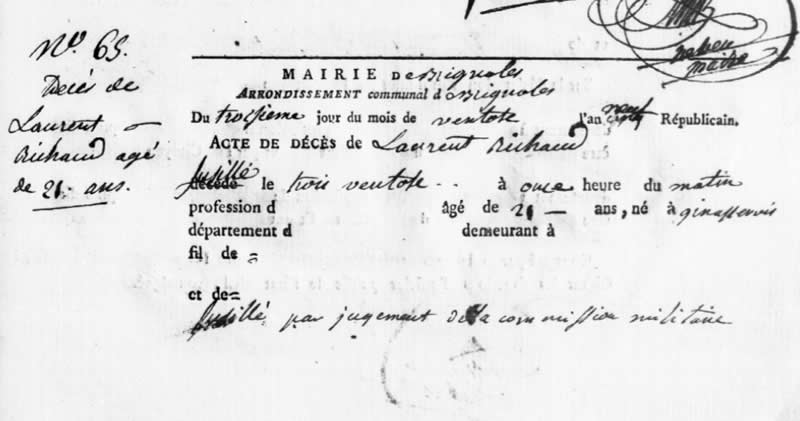 N.º 63.
Décès de
Laurent
Richaud agé
de 21. ans.
maire
MAIRIE De Brignoles
ARRONDISSEMENT communal d Brignoles
Du troisieme jour du mois de ventose l'an neuf Républicain.
ACTE DE DÉCÈS de Laurent Richaud
fusillé le trois ventose à onze heure du matin
profession d âgé de 21 ans, né à ginasservis
département d demeurant à
fil de
et de
fusillé par jugement de la commission militaire